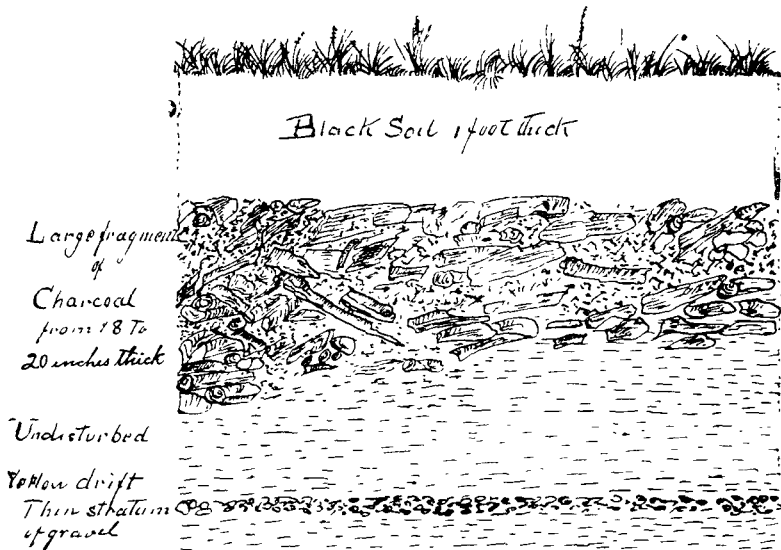 Black Soil 1 foot thick
Large fragment
of
Charcoal
from 18 To
20 inches thick
Undisturbed
Yellow drift
Thin stratum
of gravel